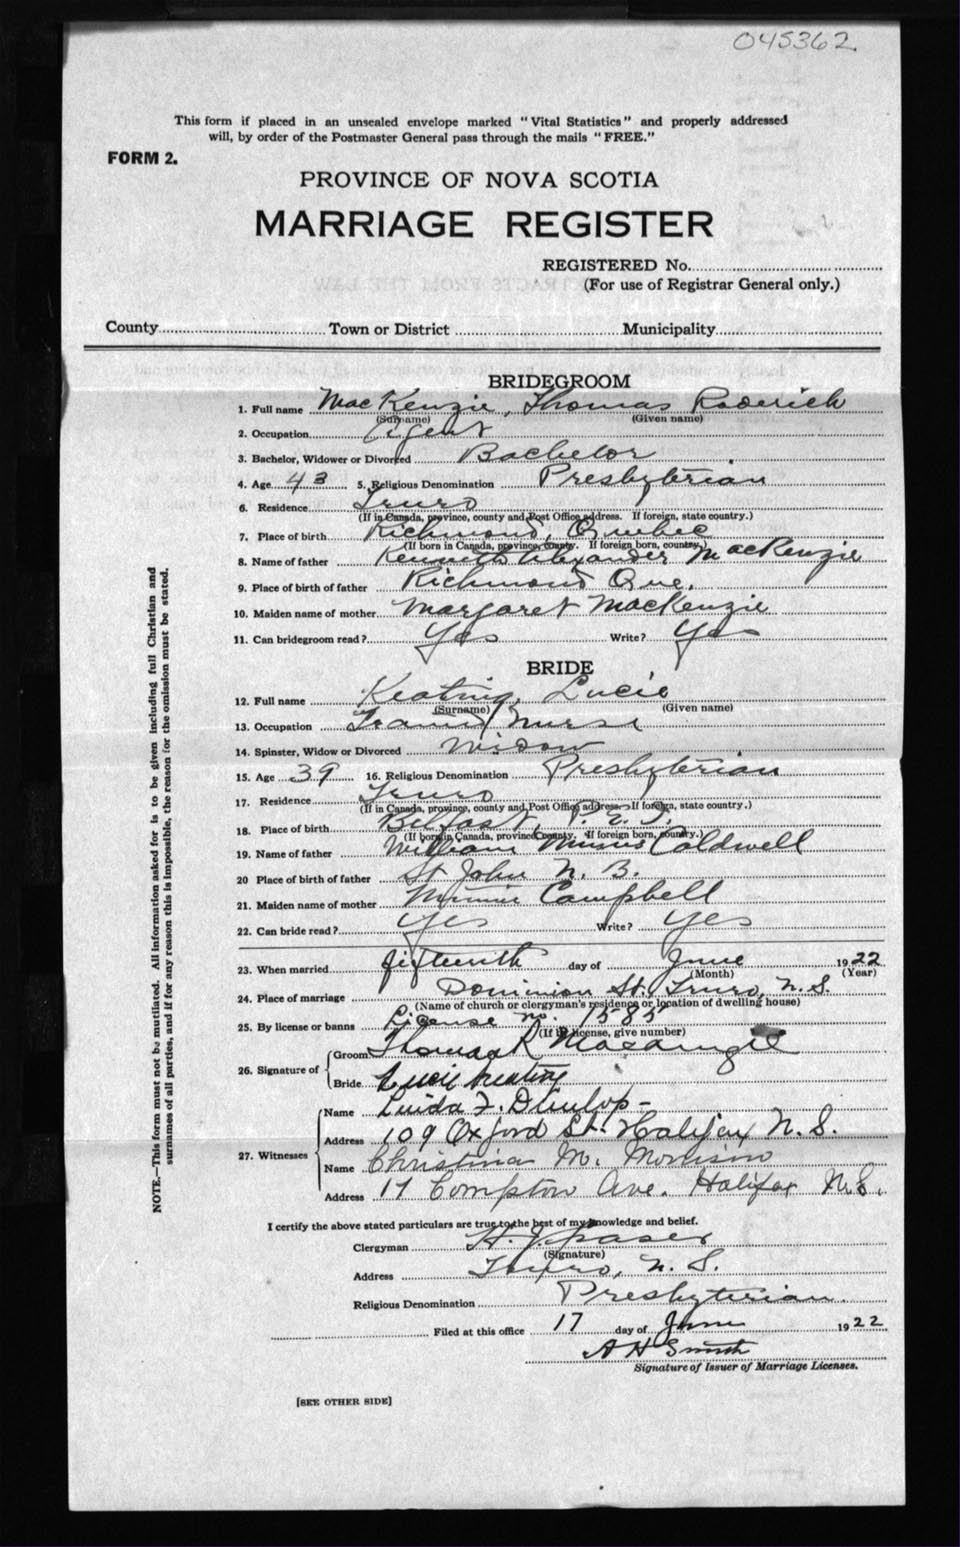 045362
This form if placed in an unsealed envelope marked "Vital Statistics" and properly addressed
will, by order of the Postmaster General pass through the mails "FREE."
FORM 2.
PROVINCE OF NOVA SCOTIA
MARRIAGE REGISTER
REGISTERED No.
(For use of Registrar General only.)
County Town or District Municipality
BRIDEGROOM
1. Full name MacKenzie, Thomas Roderick
(Surname) (Given name)
2. Occupation Agent
3. Bachelor, Widower or Divorced Bachelor
4. Age 43 5. Religious Denomination Presbyterian
6. Residence Truro
(If in Canada, province, county and Post Office address. If foreign, state country.)
7. Place of birth Richmond, Quebec
(If born in Canada, province, county. If foreign born, country.)
8. Name of father Kenneth Alexander MacKenzie
9. Place of birth of father Richmond Que.
10. Maiden name of mother Margaret MacKenzie
11. Can bridegroom read? Yes Write? Yes
BRIDE
12. Full name Keating, Lucie
(Surname) (Given name)
13. Occupation Nurse
14. Spinster, Widow or Divorced Widow
15. Age 39 16. Religious Denomination Presbyterian
17. Residence Truro
(If in Canada, province, county and Post Office address. If foreign, state country.)
18. Place of birth Belfast, P.E.I.
(If born in Canada, province, county. If foreign born, country.)
19. Name of father William Caldwell
20 Place of birth of father St John N. B.
21. Maiden name of mother Minnie Campbell
22. Can bride read? Yes Write? Yes
23. When married fifteenth day of June 1922
(Month) (Year)
24. Place of marriage Dominion St. Truro, N.S.
(Name of church or clergyman's residence or location of dwelling house)
25. By license or banns License no. 1585
(If by license, give number)
26. Signature of Groom Thomas R MacKenzie
Bride Lucie Keating
27. Witnesses Name F. Dunlop
Address 109 Oxford St. Halifax N.S.
Name Christina M. Morrison
Address 17 Compton Ave. Halifax N.S.
I certify the above stated particulars are true to the best of my knowledge and belief.
Clergyman H. J. Fraser
(Signature)
Address Truro, N. S.
Religious Denomination Presbyterian
Filed at this office 17 day of June 1922
A H Smith
Signature of Issuer of Marriage Licenses.
[SEE OTHER SIDE]
NOTE.—This form must not be mutilated. All information asked for is to be given including full Christian and
surnames of all parties, and if for any reason this is impossible, the reason for the omission must be stated.